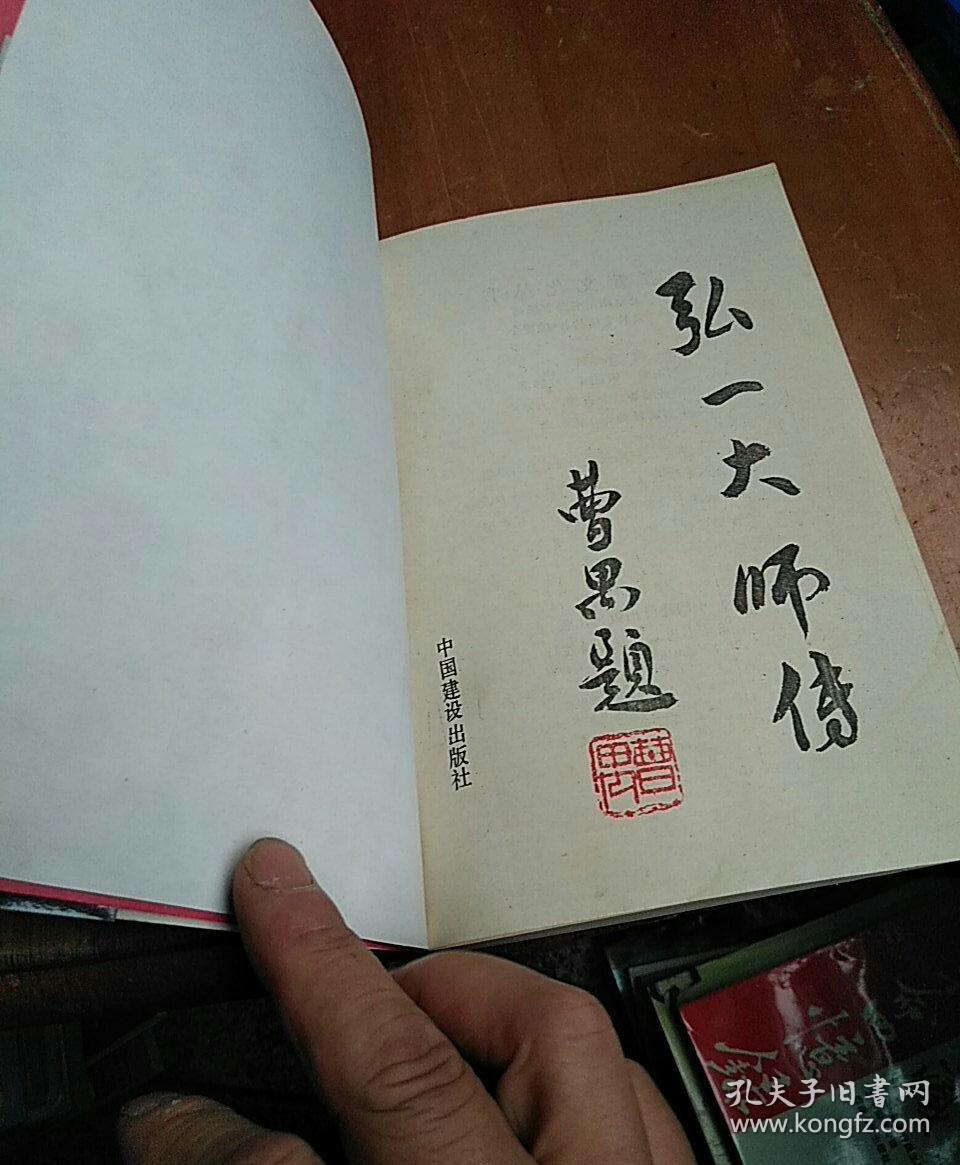 弘一大师传
曹禺题
曹禺
中国建设出版社
孔夫子旧书网
www.kongfz.com